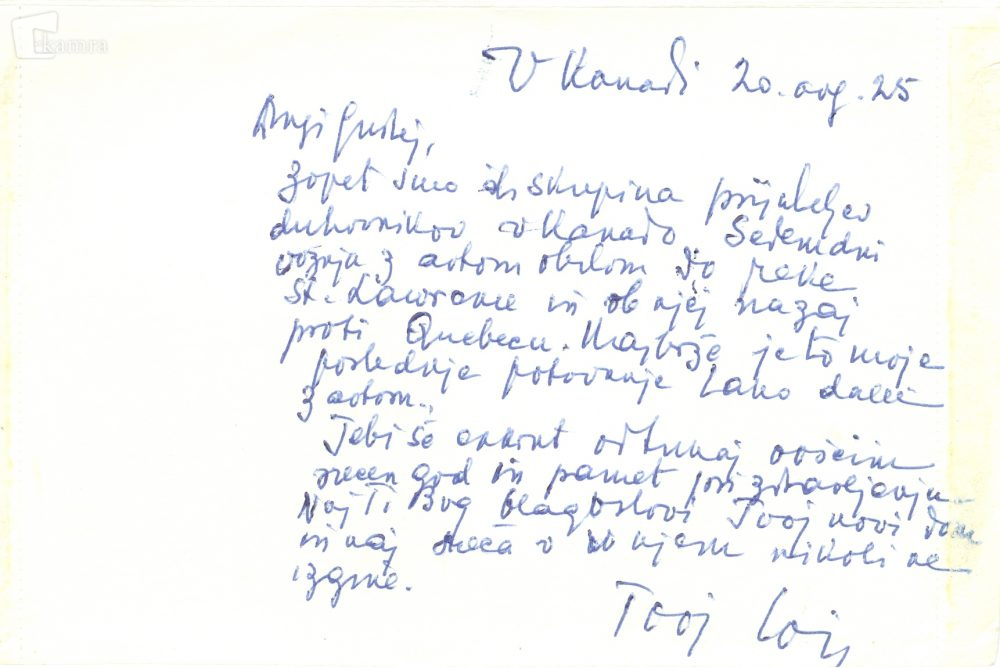 kamra
V Kanadi 20. avg. 25
Dragi Gustej,
zopet smo skupina prijateljev
duhovnikov v Kanado. Sedemdni
vožnja z avtomobilom do reke
St. Lawrence in ob njej nazaj
proti Quebecu. Najbrže je to moje
poslednje potovanje tako daleč
z avtom.
Tebi še enkrat od tukaj voščim
srečen god in pamet pri zdravljenju.
Naj Ti Bog blagoslovi Tvoj novi dom
in naj sreča v njem nikoli ne
izgine.
Tvoj Lojz